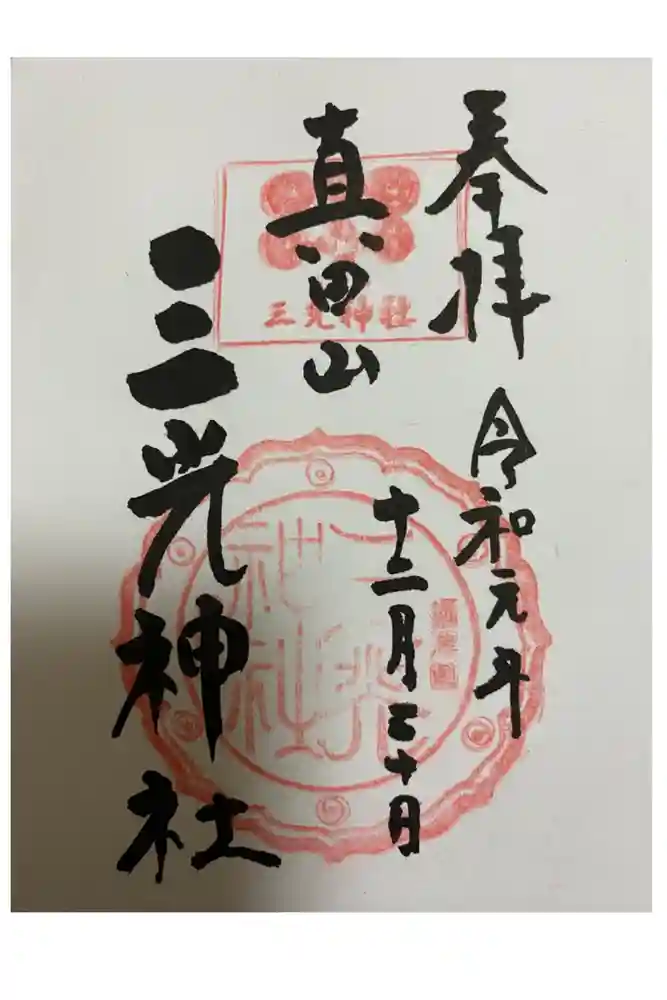 奉拝
令和元年
十二月三十日
真田山
三光神社
三光神社
三光神社